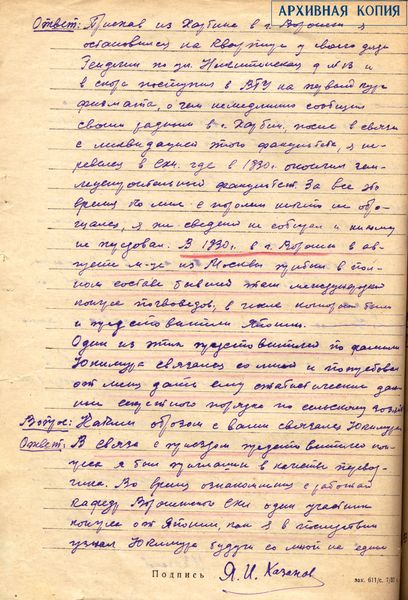 АРХИВНАЯ КОПИЯ
Ответ: Приехав из Харбина в г. Воронеж я
остановился на квартире у своего дяди
по ул. д № 13 и
в скоре поступил в ВГУ на первый курс
физмата, о чем немедленно сообщил
своим родным в г. Харбин, после в связи
с ликвидацией этого факультета, я пе-
ревелся в СХИ. где в 1930г. окончил зем-
леустроительный факультет. За все это
время ко мне с никто не обра-
щался, я же сведений не собирал и никому
не передавал. В 1930г. в г. Воронеж в ав-
густе м-це из Москвы прибыл в пол-
ном составе бывший там международный
конгресс почвоведов, в числе которых были
и представители Японии.
Один из этих представителей по фамилии
Юкимура связался со мной и потребовал
от меня дать ему статистические дан-
ные секретного порядка по сельскому хозяй
Вопрос: Каким образом с вами связался Юкимура
Ответ: В связи с приездом представителей кон-
гресса я был приглашен в качестве перевод-
чика. Во время ознакомления с работой
кафедр Воронежского СХИ один участник
конгресса от Японии, как я в последствии
узнал Юкимура будучи со мной на един
Подпись Я. И. Казанов
зак. 611/с.